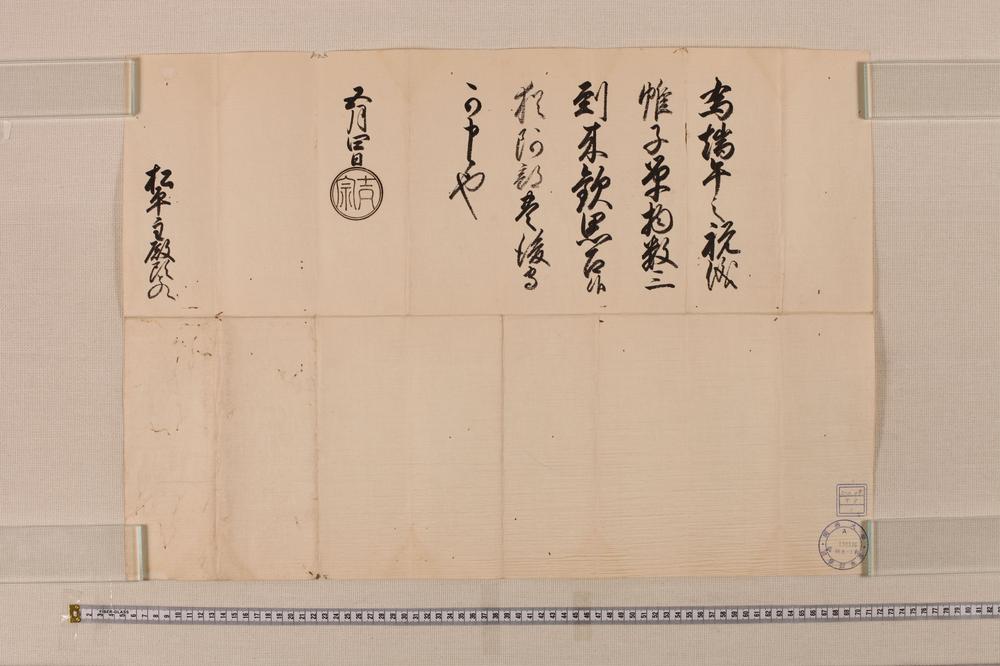 為端午之祝儀
帷子單物数二
到来歓思召候
猶阿部豊後守
可申也
五月四日
吉宗
松平主殿頭とのへ